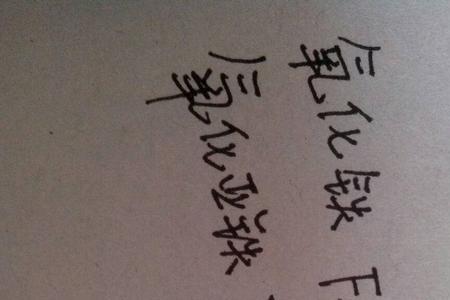 氧化铁 F
氧化亚铁